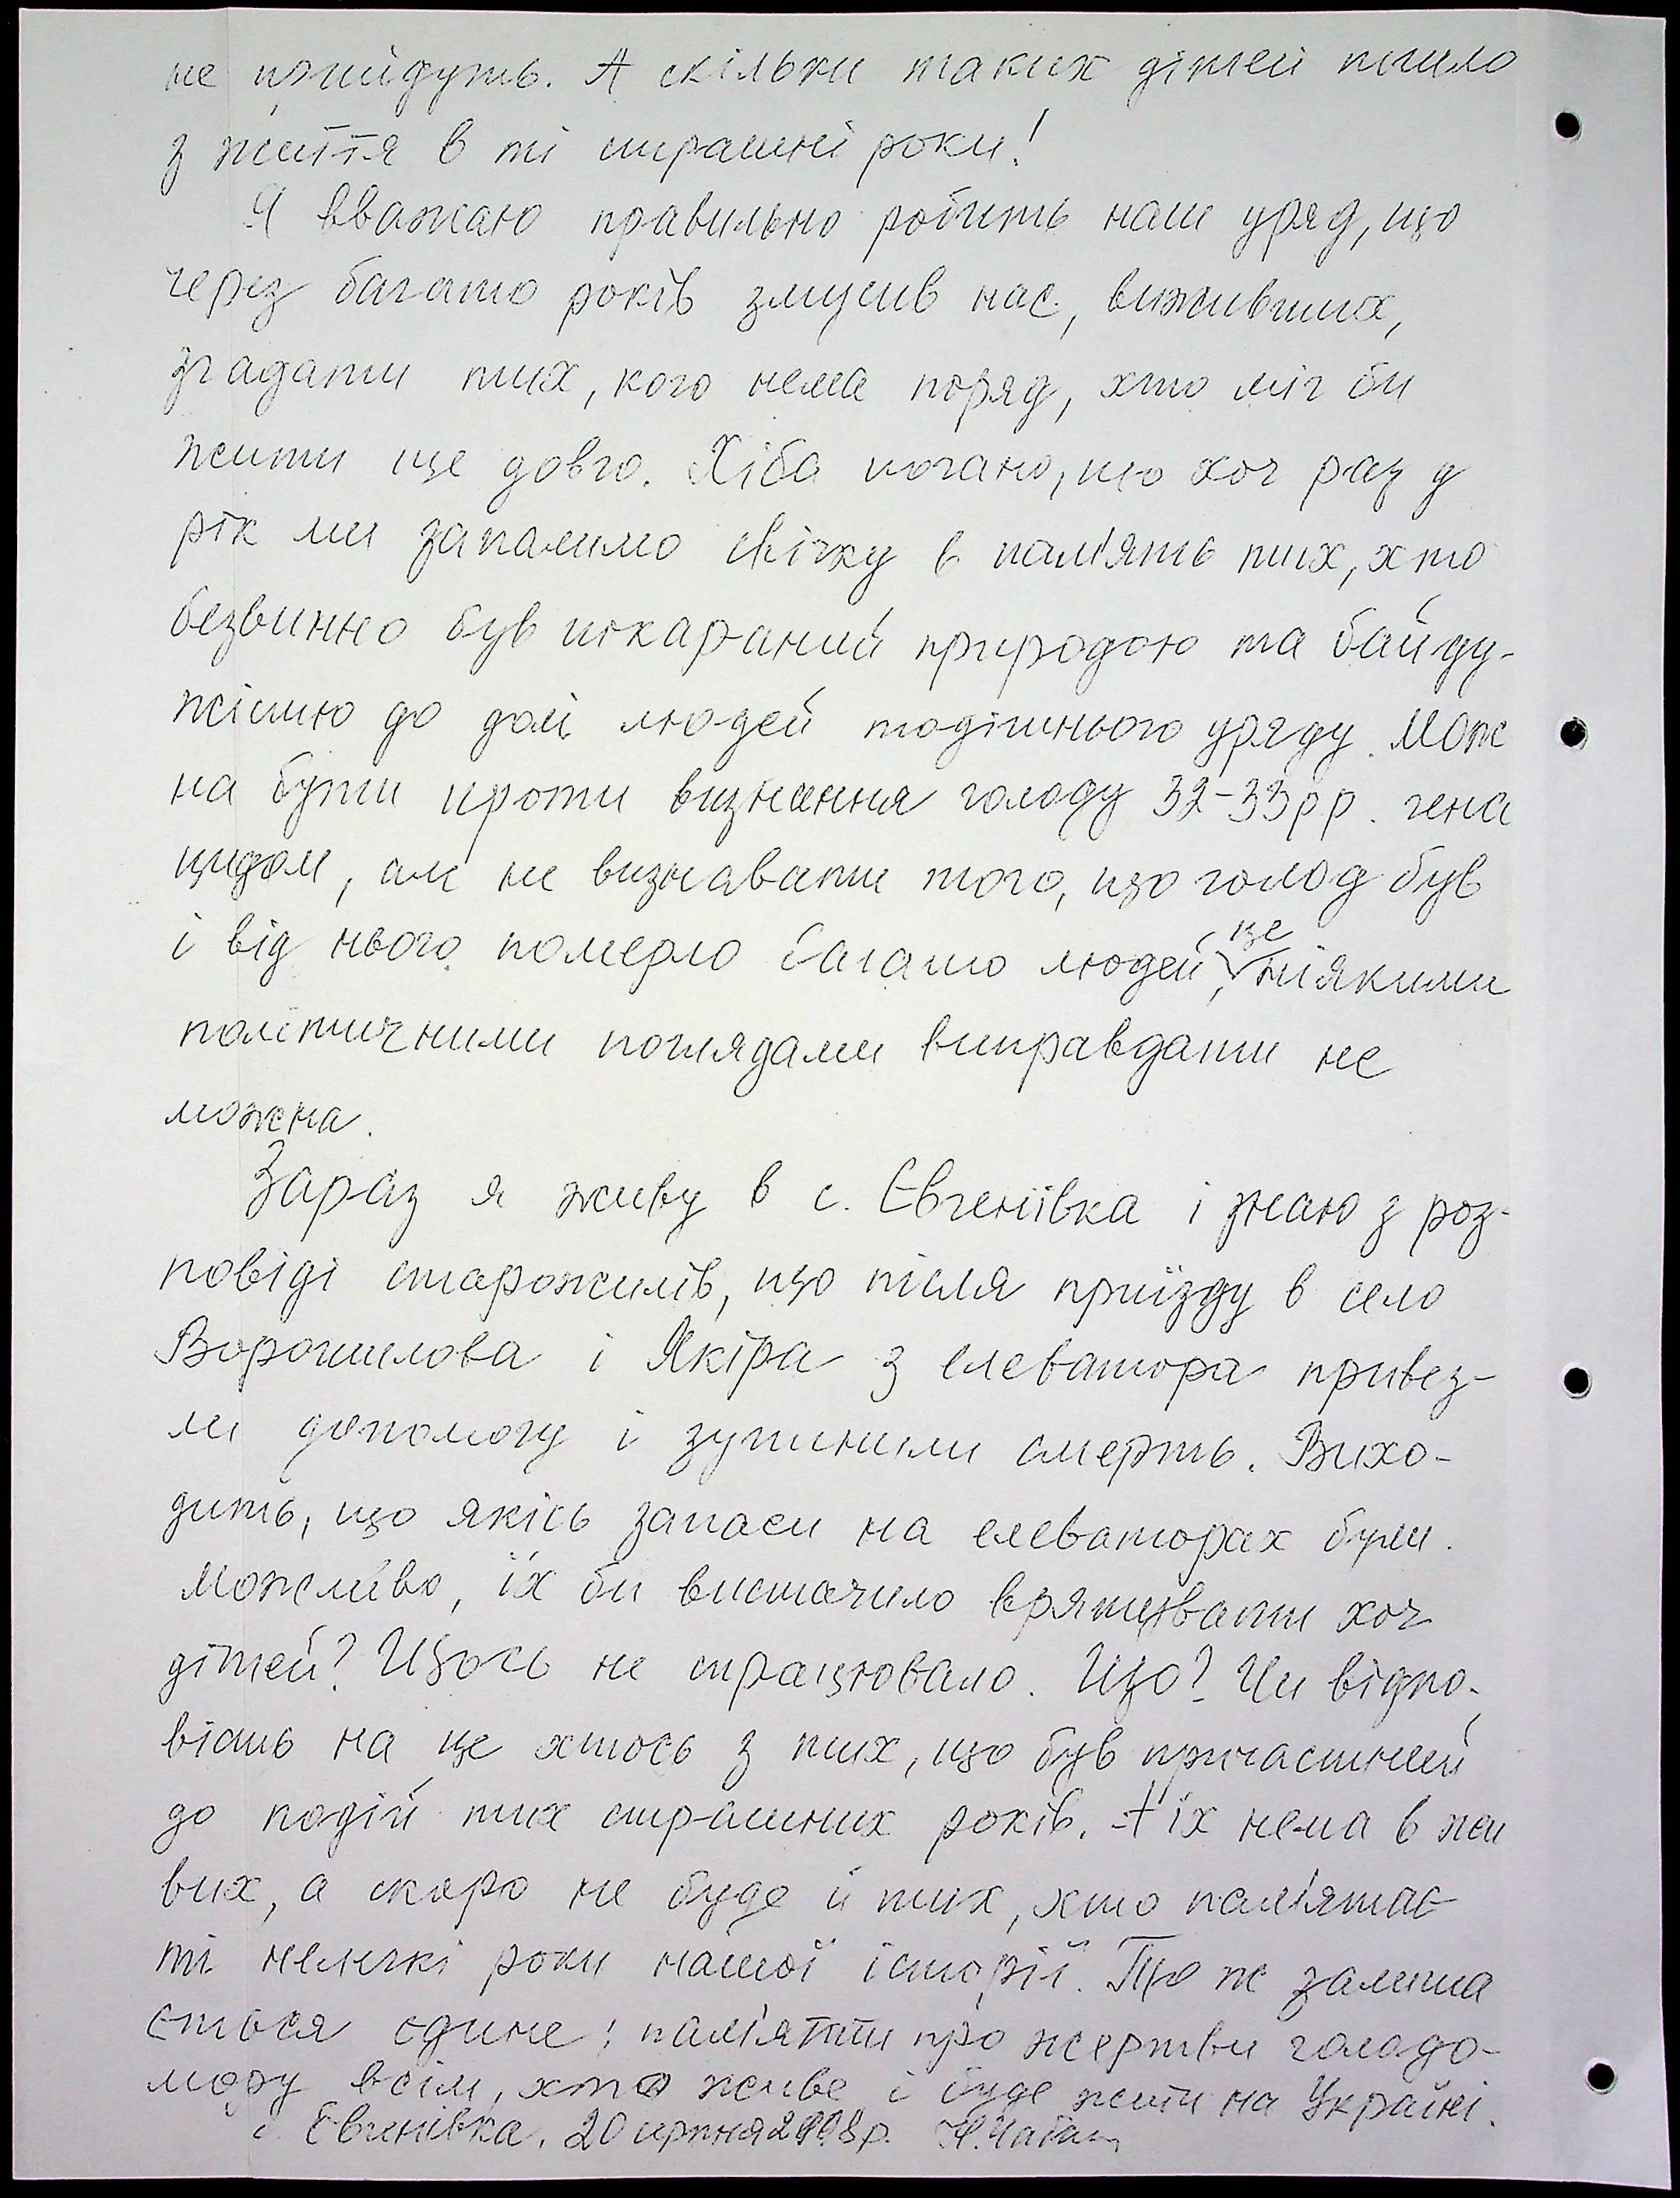 не прийдуть. А скільки таких дітей пішло
з життя в ті страшні роки!
Я вважаю правильно робить наш уряд, що
через багато років змусив нас, виживших,
згадати тих, кого нема поряд, хто міг би
жити ще довго. Хіба погано, що хоч раз у
рік ми запалимо свічку в пам'ять тих, хто
безвинно був покараний природою та байду-
жістю до долі людей тодішнього уряду. Мож
на бути проти визнання голоду 32-33рр. гено
цидом, але не визнавати того, що голод був
і від нього померло багато людей, це ніякими
політичними поглядами виправдати не
можна.
Зараз я живу в с. Євгенівка і знаю з роз-
повіді старожилів, що після приїзду в село
Ворошилова і Якіра з елеватора привез-
ли допомогу і зупинили смерть. Вихо-
дить, що якісь запаси на елеваторах були.
Можливо, їх би вистачило врятувати хоч
дітей? Щось не спрацювало. Що? Чи відпо-
вість на це хтось з тих, що був причастний
до подій тих страшних років. А їх нема в жи
вих, а скоро не буде й тих, хто пам'ятає
ті нелегкі роки нашої історії. То ж залиша
ється єдине: пам'ятати про жертви голодо-
мору всім, хто живе і буде жити на Україні.
с. Євгенівка. 20 серпня 2008р.